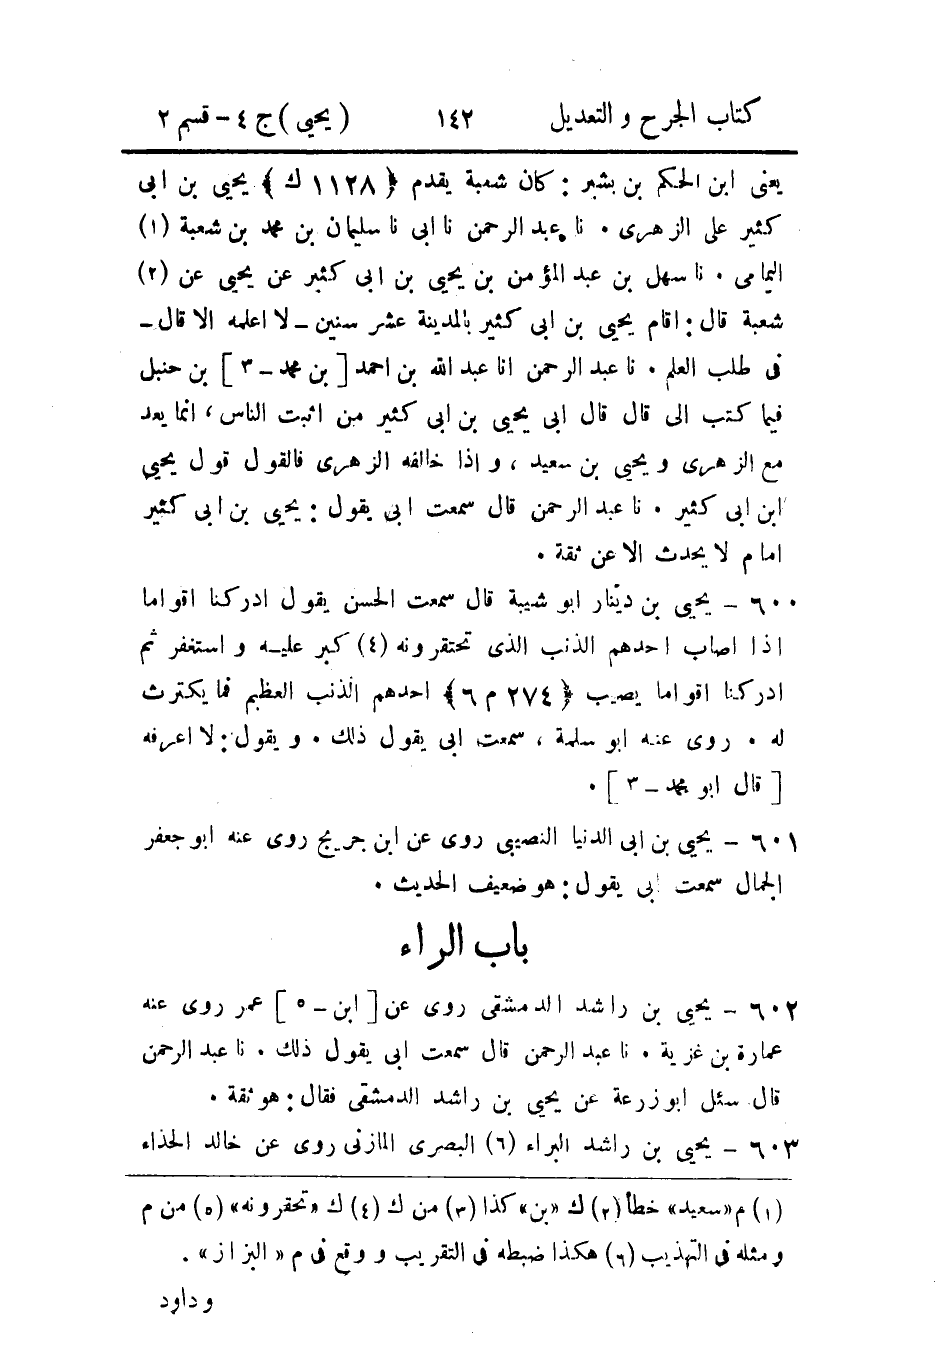 كتاب الجرح والتعديل ١٤٢ (يحيى) ج ٤ - قسم ٢
يعنى ابن الحكم بن بشير : كان شعبة يقدم ﴿ ١١٢٨ ك ﴾ يحيى بن ابى
كثير على الزهرى . نا عبد الرحمن نا ابى نا سليمان بن محمد بن شعبة (١)
اليمامى . نا سهل بن عبد المؤمن بن يحيى بن ابى كثير عن يحيى عن (٢)
شعبة قال : اقام يحيى بن ابى كثير بالمدينة عشر سنين ـ لا اعلمه الا قال ـ
فى طلب العلم . نا عبد الرحمن انا عبد الله بن احمد [ بن محمد ـ ٣ ] بن حنبل
فيما كتب الى قال قال ابى يحيى بن ابى كثير من اثبت الناس ، انما يعد
مع الزهرى ويحيى بن سعيد ، واذا خالفه الزهرى فالقول قول يحيى
ابن ابى كثير . نا عبد الرحمن قال سمعت ابى يقول : يحيى بن ابى كثير
امام لا يحدث الا عن ثقة .
٦٠٠ ـ يحيى بن دينار ابو شيبة قال سمعت الحسن يقول ادركنا اقواما
اذا اصاب احدهم الذنب الذى تحتقرونه (٤) كبر عليه واستغفر ثم
ادركنا اقواما يصيب ﴿ ٢٧٤ م ٦ ﴾ احدهم الذنب العظيم فما يكترث
له . روى عنه ابو سلمة ، سمعت ابى يقول ذلك . ويقول : لا اعرفه
[ قال ابو محمد ـ ٣ ] .
٦٠١ ـ يحيى بن ابى الدنيا النصيبى روى عن ابن جريج روى عنه ابو جعفر
الجمال سمعت ابى يقول : هو ضعيف الحديث .
باب الراء
٦٠٢ ـ يحيى بن راشد الدمشقى روى عن [ ابن ـ ٥ ] عمر روى عنه
عمارة بن غزية . نا عبد الرحمن قال سمعت ابى يقول ذلك . نا عبد الرحمن
قال سئل ابو زرعة عن يحيى بن راشد الدمشقى فقال : هو ثقة .
٦٠٣ ـ يحيى بن راشد البراء (٦) البصرى المازنى روى عن خالد الحذاء
(١) م «سعيد» خطأ (٢) ك «بن» كذا (٣) من ك (٤) ك «تحقرونه» (٥) من م
ومثله فى التهذيب (٦) هكذا ضبطه فى التقريب ووقع فى م «البزاز» .
وداود